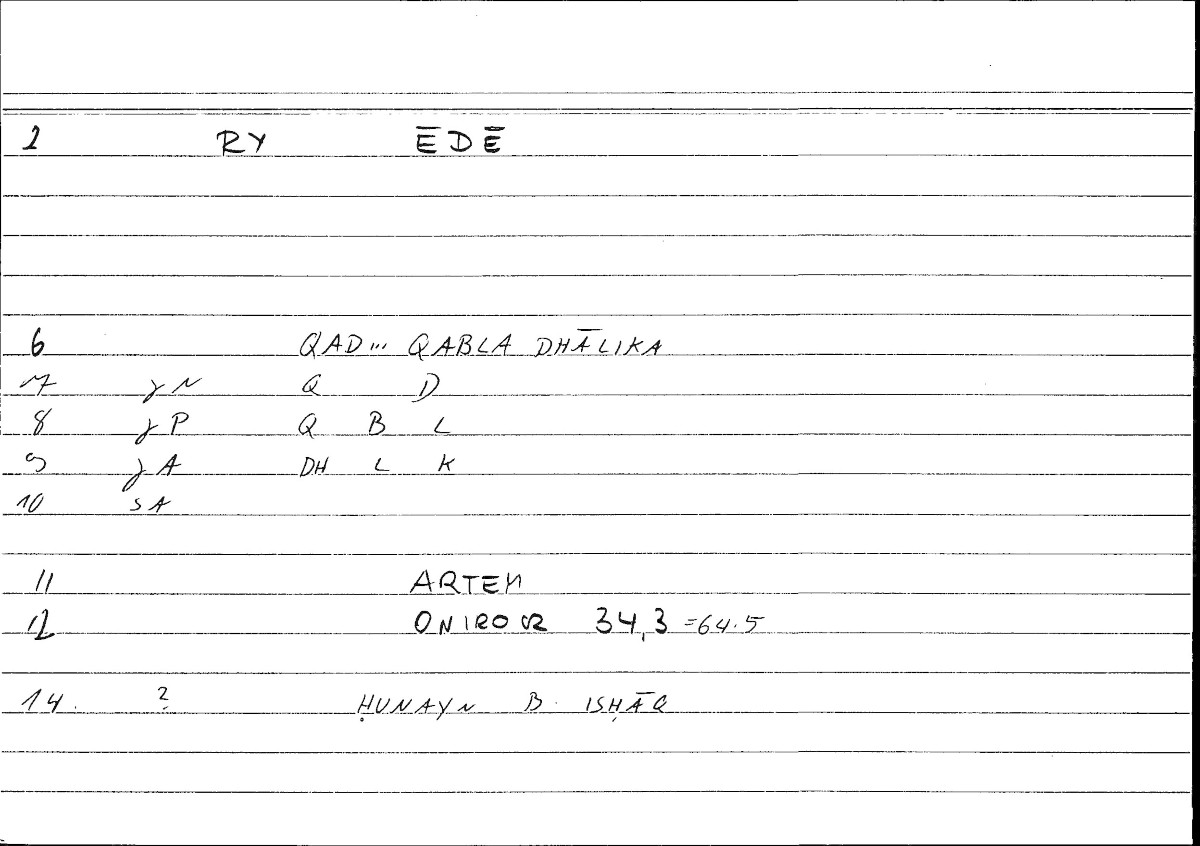 2 RY ĒDĒ
6 QAD... QABLA DHĀLIKA
7 γN Q D
8 γP Q B L
9 γA DH L K
10 SA
11 ARTEM
12 ONIROCR 34,3 =64.5
14. ? ḤUNAYN B. ISḤĀQ